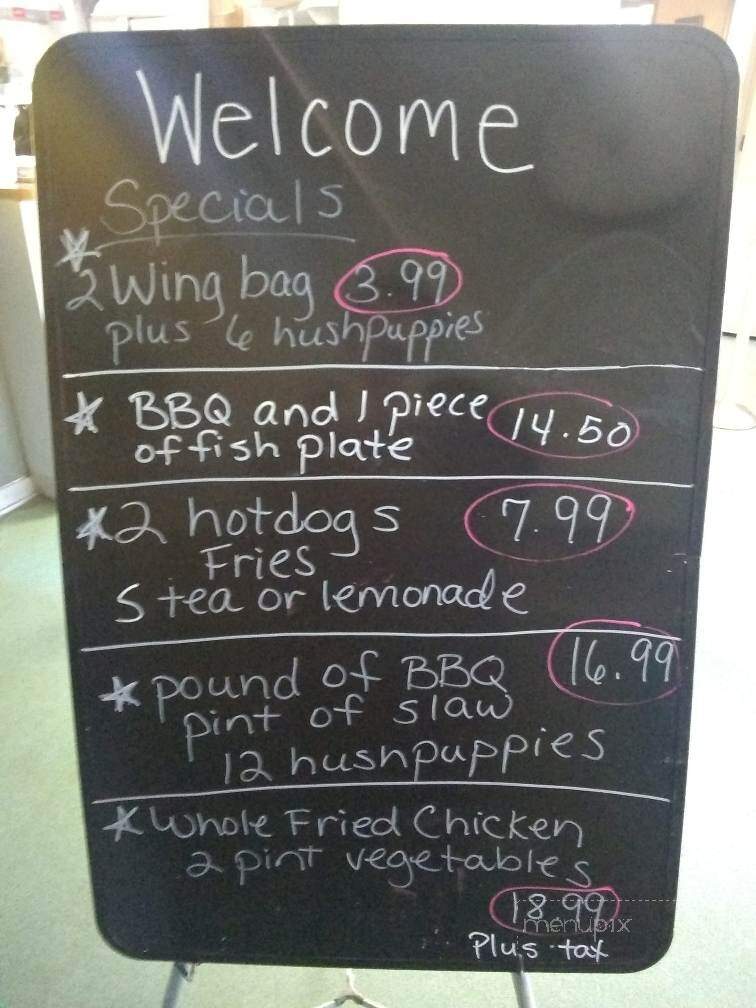 Welcome
Specials
2 Wing bag 3.99
plus 6 hushpuppies
BBQ and 1 piece 14.50
of fish plate
2 hotdogs 7.99
Fries
S tea or lemonade
pound of BBQ 16.99
pint of slaw
12 hushpuppies
Whole Fried Chicken
2 pint vegetables
18.99
menupix
Plus tax